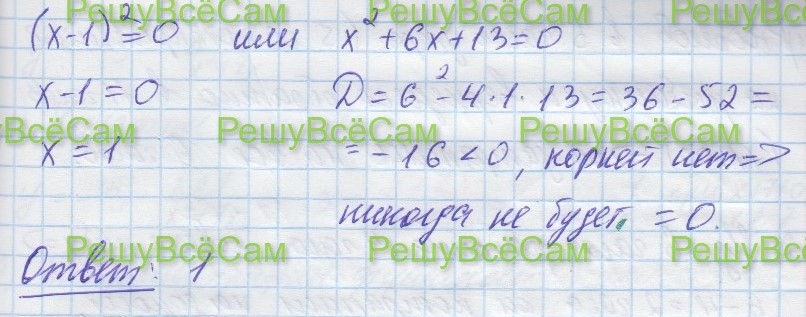 РешуВсёСам РешуВсёСам РешуВсёСам
(x-1)²=0 или x²+6x+13=0
x-1=0 D=6²-4·1·13=36-52=
РешуВсёСам РешуВсёСам РешуВсёСам
x=1 =-16<0, корней нет=>
никогда не будет =0.
РешуВсёСам РешуВсёСам РешуВсёСам
Ответ: 1